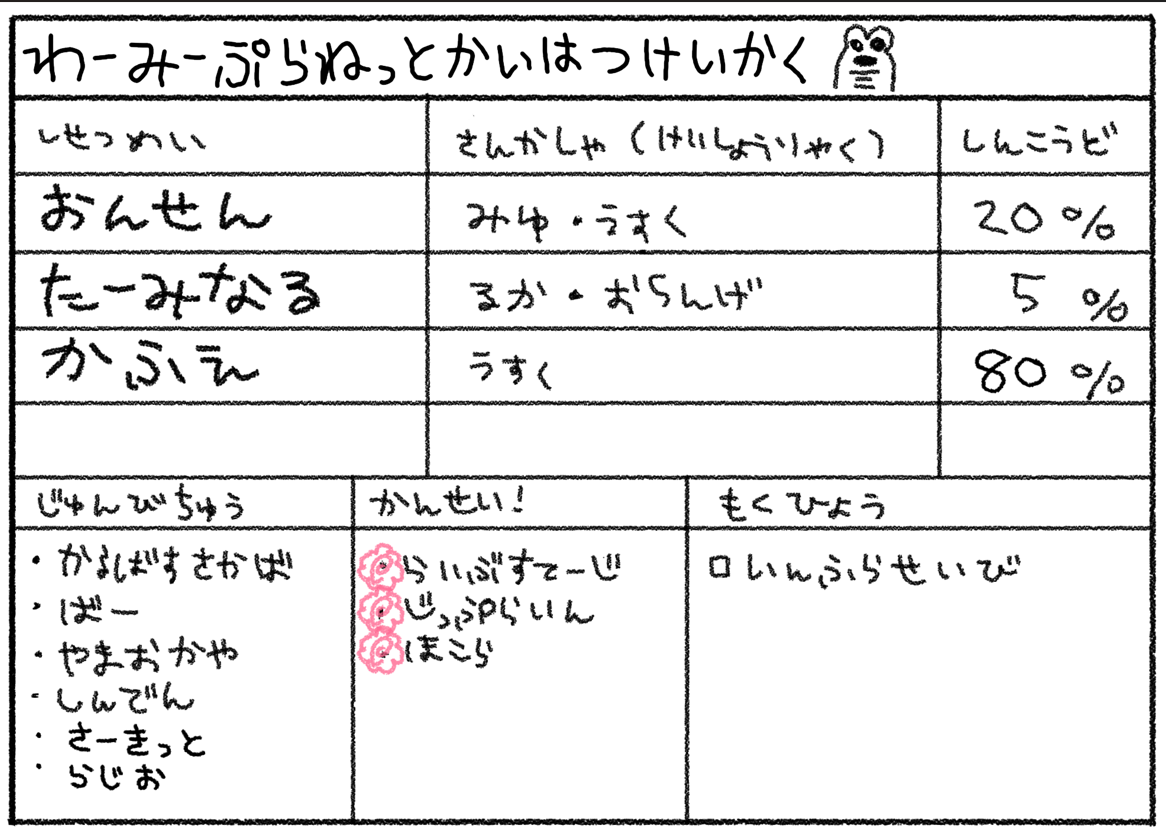 わーみーぷらねっとかいはつけいかく
しせつめい さんかしゃ（けいしょうりゃく） しんこうど
おんせん みゆ・うすく 20%
たーみなる るか・おらんげ 5%
かふぇ うすく 80%
じゅんびちゅう かんせい！ もくひょう
・かるばすさかば
・ばー
・やまおかや
・しんでん
・さーきっと
・らじお
・らいぶすてーじ
・じっぷらいん
・ほこら
□いんふらせいび